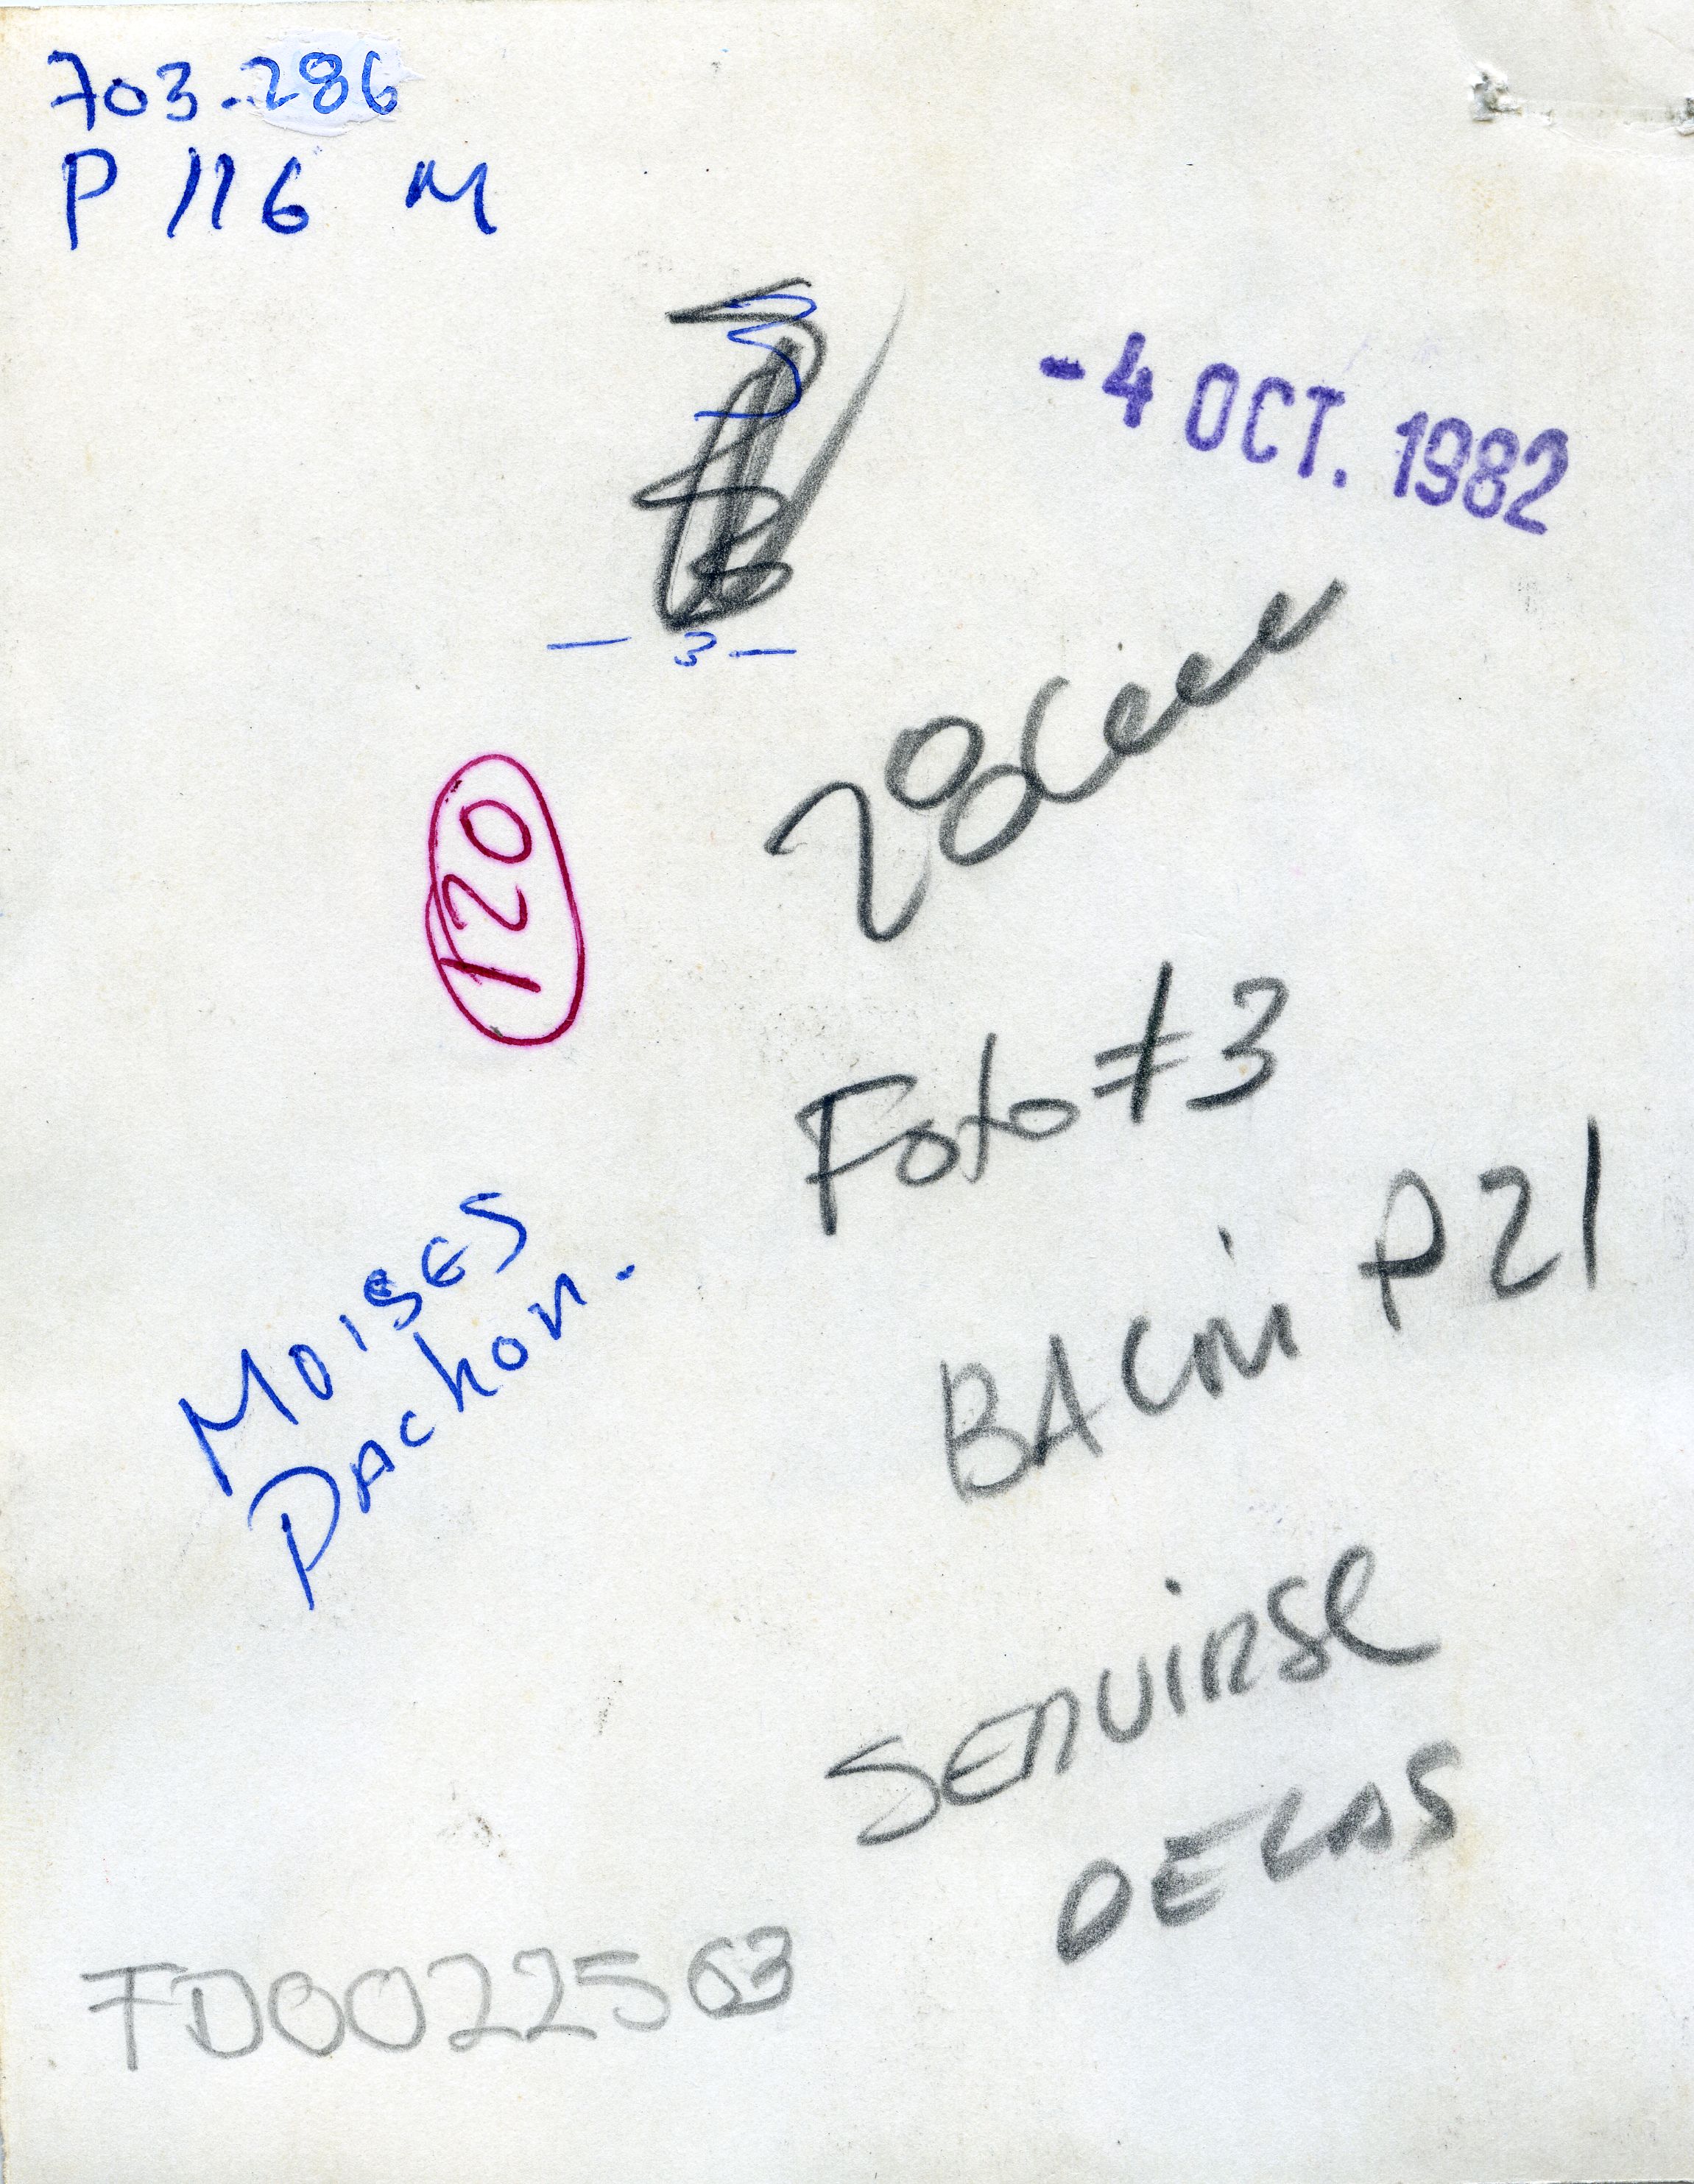 703-286
P 116 M
-4 OCT. 1982
- 3 -
28 Cem
120
Foto #3
BACON P21
MOISES
PAChon.
SERVIRSE
DELAS
FD0022563